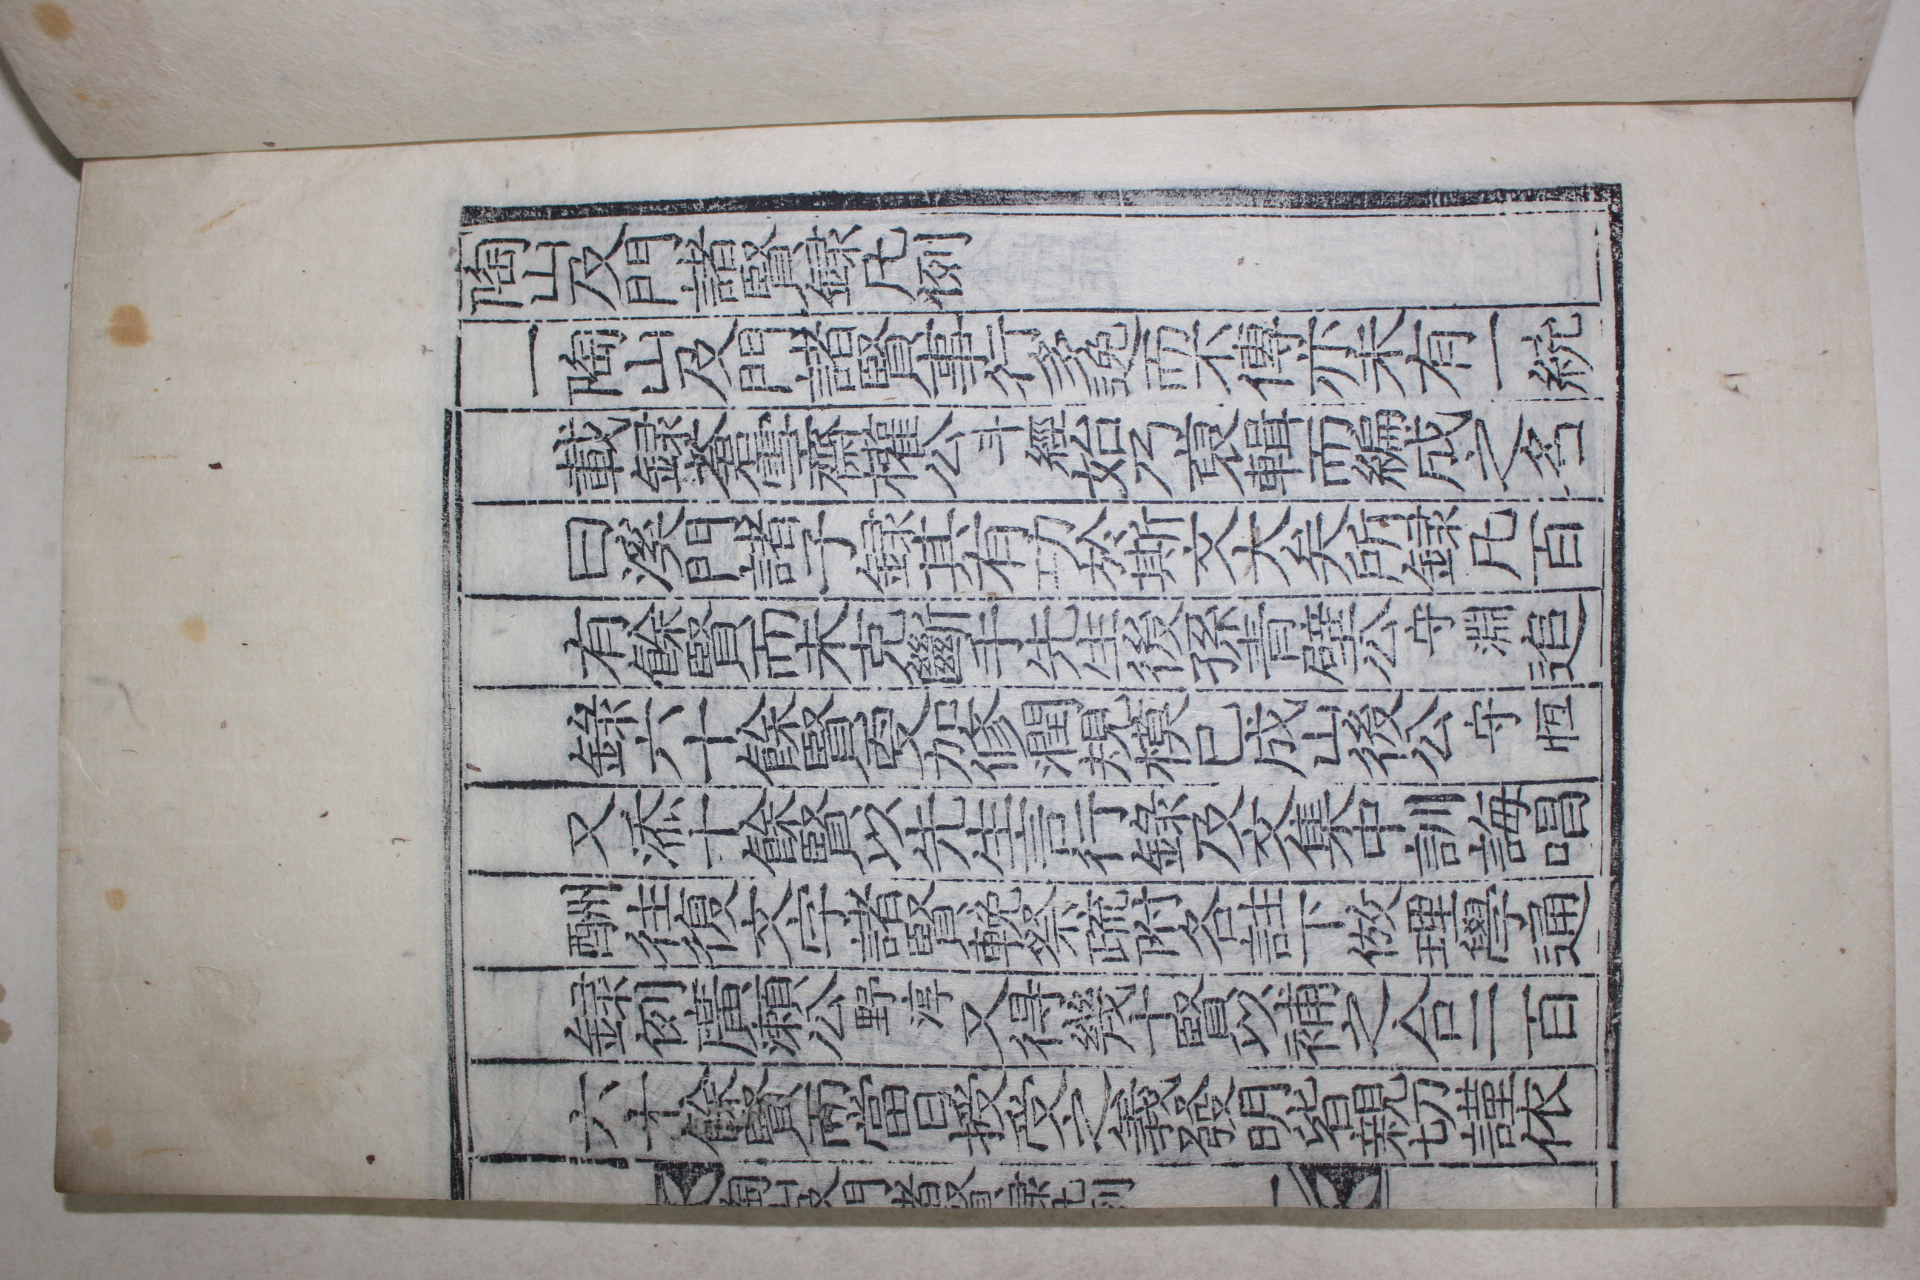 陶山及門諸賢錄凡例
一陶山及門諸賢事行多逸而不傳亦未有一統
載錄蒼雪齋權公斗經始乃裒輯而編成之名
曰溪門諸子錄其有功於斯文大矣所錄凡百
有餘賢而未克斷手先生後孫青壁公守淵追
錄六十餘賢爰加修潤規模已成山後公守恒
又添十餘賢以先生言行錄及文集中訓誨唱
酬往復文字諸賢輓祭疏附合註下倣理學通
錄例廣瀨公野淳又得幾十賢以補之合二百
六十餘賢而當日授受之義發明皆親切謹依
陶山及門諸賢錄凡例 一